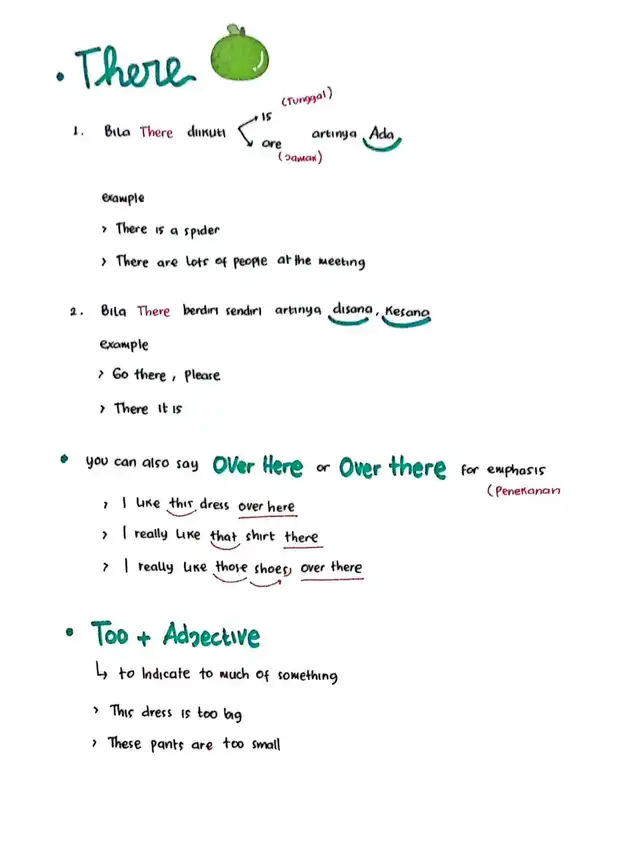 • There
(Tunggal)
is
1. Bila There diikuti are artinya Ada
(Jamak)
example
> There is a spider
> There are lots of people at the meeting
2. Bila There berdiri sendiri artinya disana, kesana
example
> Go there, Please
> There it is
• you can also say Over Here or Over there for emphasis
(Penekanan
> I like this dress over here
> I really like that shirt there
> I really like those shoes, over there
• Too + Adjective
↳ to Indicate to much of something
> This dress is too big
> These pants are too small